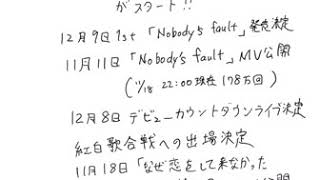 がスタート!!
12月9日 1st「Nobody's fault」発売決定
11月11日「Nobody's fault」MV公開
(11/18 22:00現在 178万回)
12月8日 デビューカウントダウンライブ決定
紅白歌合戦への出場決定
11月18日「なぜ恋をして来なかった
公開